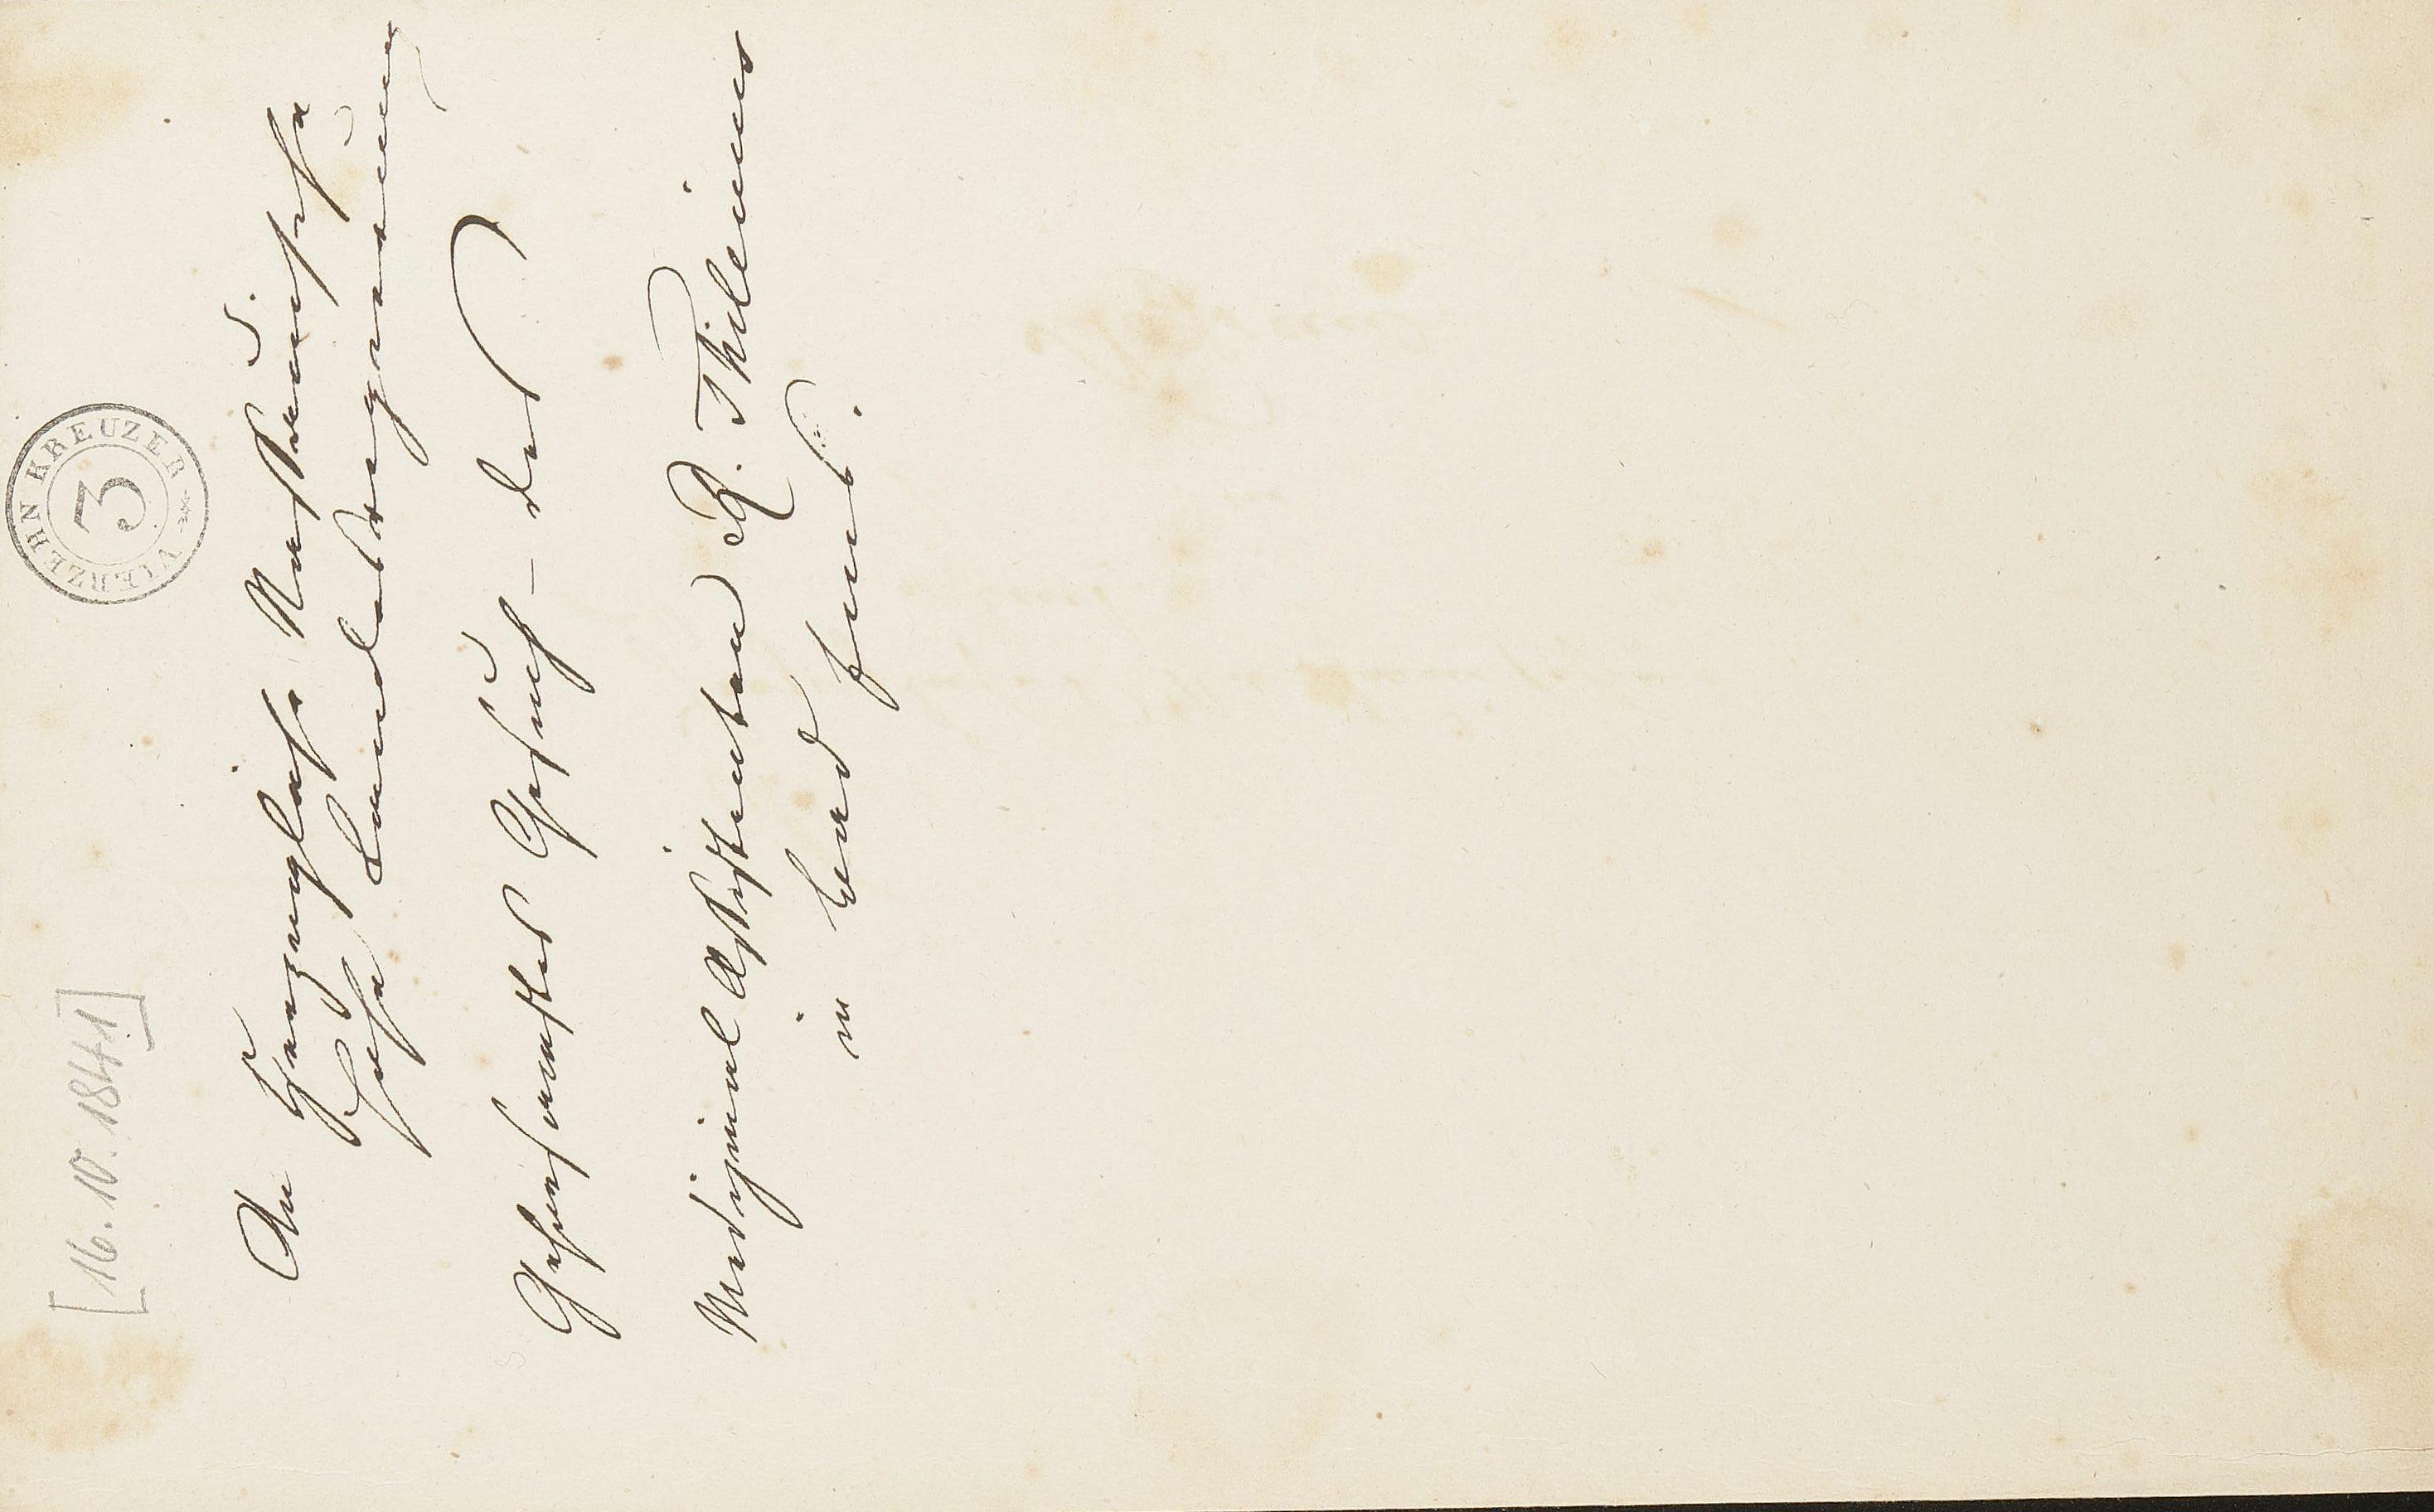 [16.10.1841]
VIERZEHN KREUZER
3
An Herzoglich Nassauische
hohe Landesregierung
Gehorsamstes Gesuch – des
Medizinal Assistenten R. Thilenius
in Bad Ems.